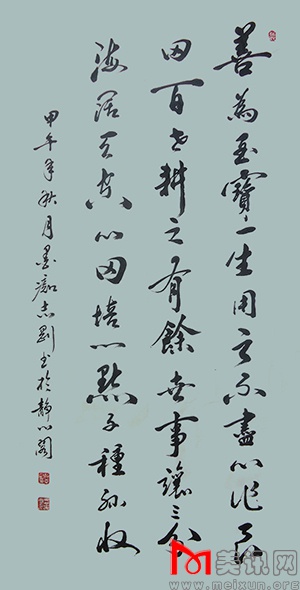 善為至寶一生用之不盡心作良
田百世耕之有餘世事讓三分
海闊天空心田培一點子種孫收
甲午年秋月墨癡志剛書於靜心閣
美讯网
www.meixun.org